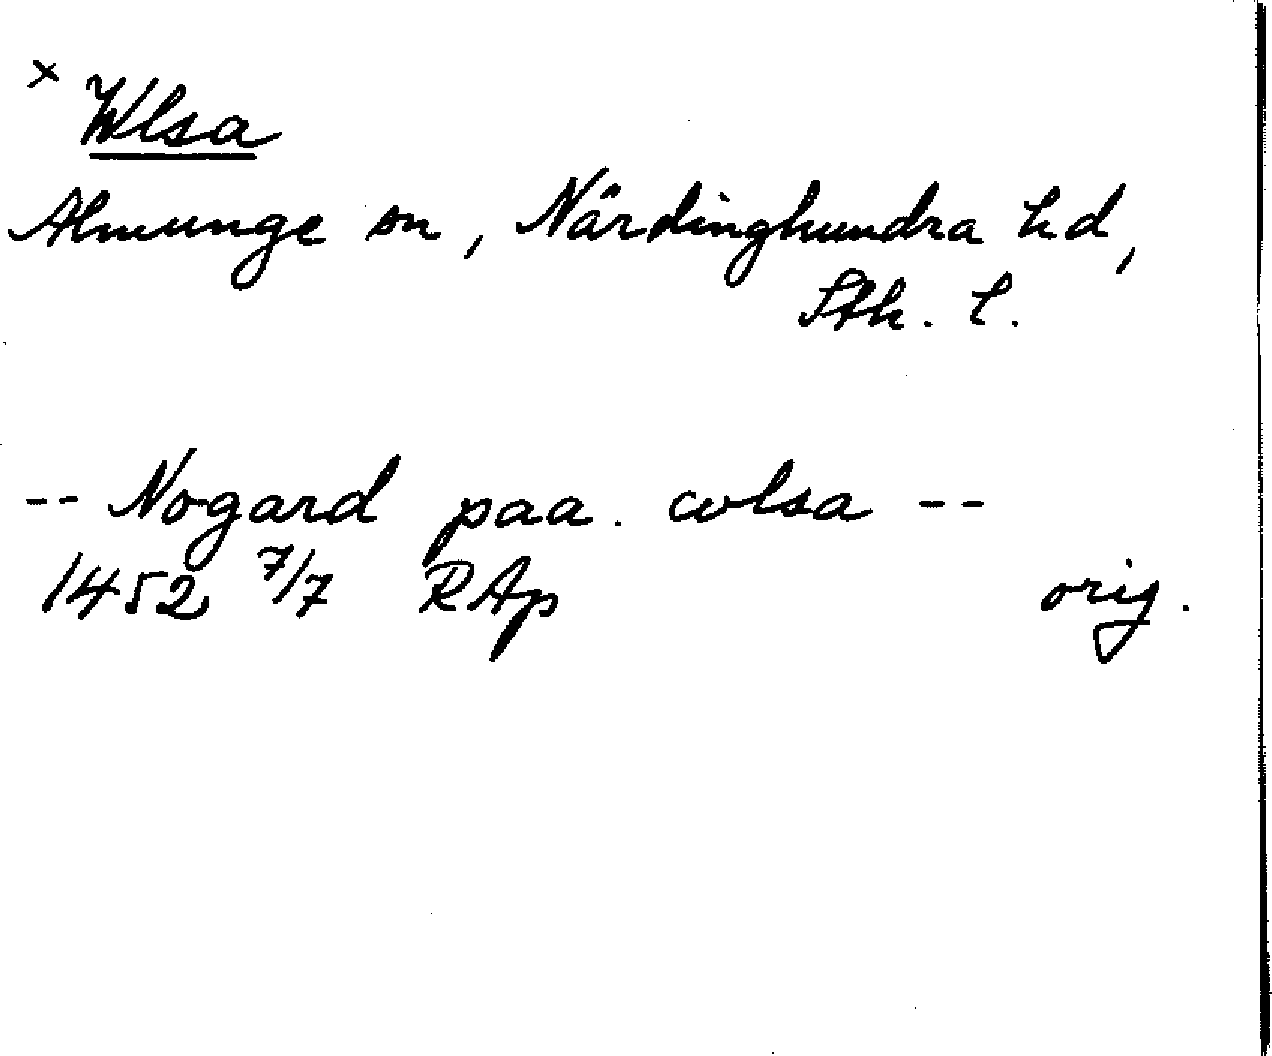 × Wlsa
Almunge sn, Närdinghundra hd,
Sth. l.
-- Nogard paa. wlsa --
1452 7/7 RAp orig.